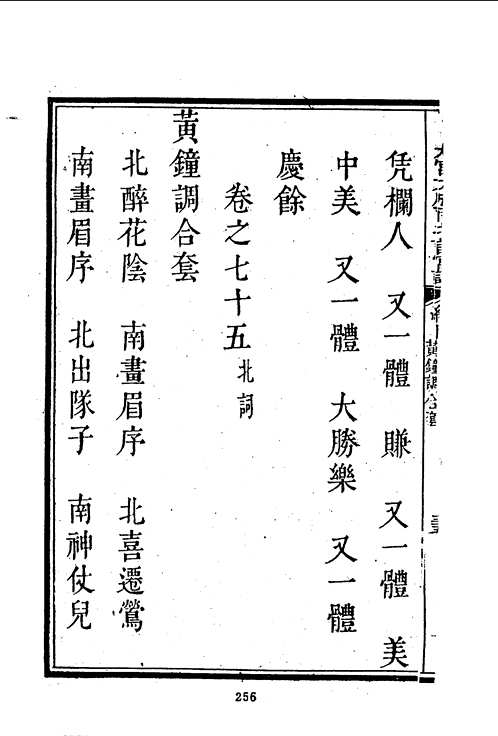 凭欄人　又一體　賺　又一體　美
中美　又一體　大勝樂　又一體
慶餘
卷之七十五北詞
黃鐘調合套
北醉花陰　南畫眉序　北喜遷鶯
南畫眉序　北出隊子　南神仗兒
256